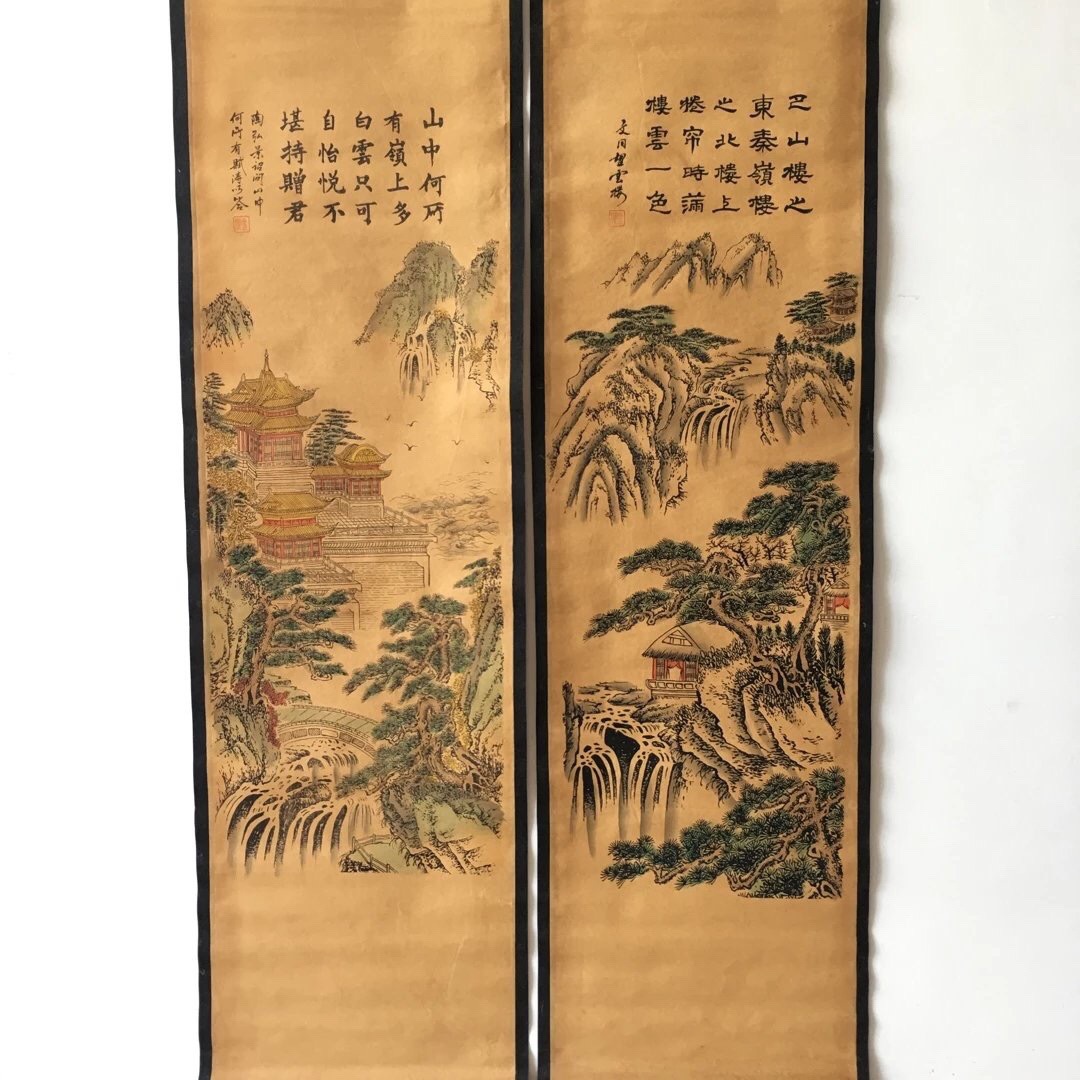 巴山樓之
東秦嶺樓
之北樓上
捲帘時滿
樓雲一色
文同望雲樓
山中何所
有嶺上多
白雲只可
自怡悦不
堪持贈君
陶弘景詔問山中
何所有賦詩以答